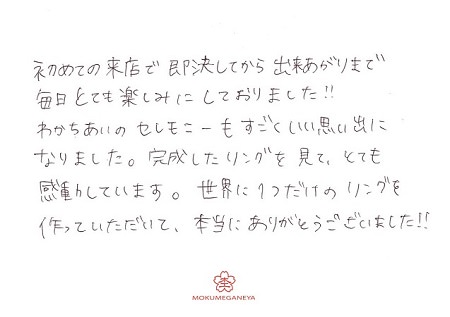 初めての来店で即決してから出来あがりまで
毎日とても楽しみにしておりました!!
わかちあいのセレモニーもすごくいい思い出に
なりました。完成したリングを見て、とても
感動しています。世界に1つだけのリングを
作っていただいて、本当にありがとうございました!!
杢
MOKUMEGANEYA